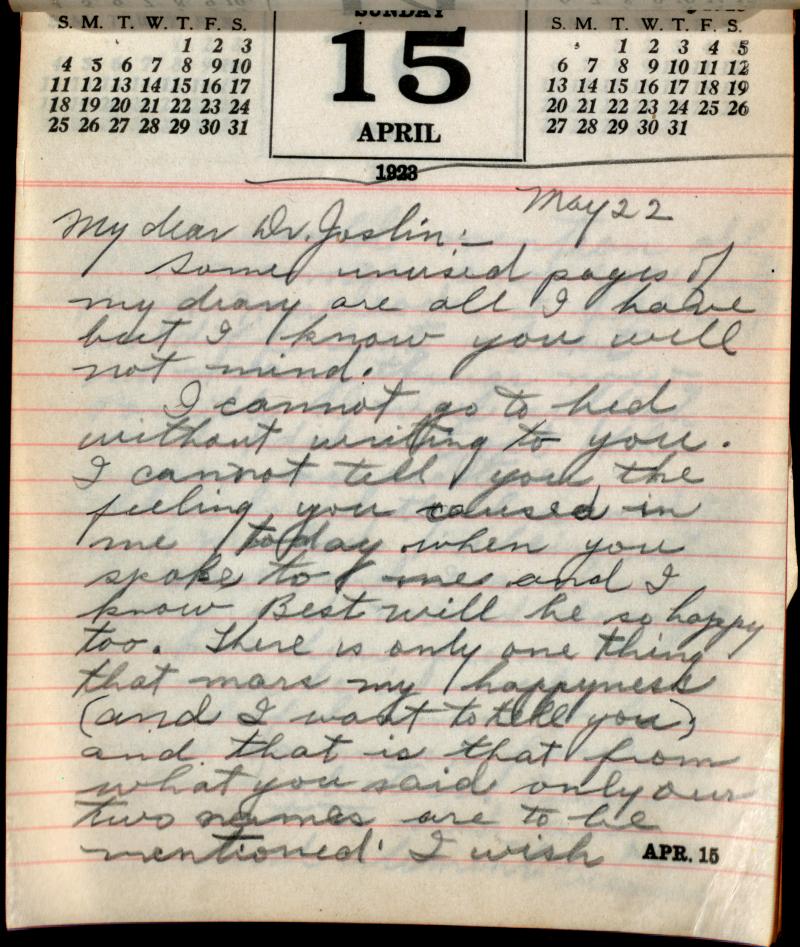 SUNDAY
15
APRIL
1923
S. M. T. W. T. F. S.
1 2 3
4 5 6 7 8 9 10
11 12 13 14 15 16 17
18 19 20 21 22 23 24
25 26 27 28 29 30 31
S. M. T. W. T. F. S.
1 2 3 4 5
6 7 8 9 10 11 12
13 14 15 16 17 18 19
20 21 22 23 24 25 26
27 28 29 30 31
May 22
My dear Dr. Joslin:-
Some unused pages of
my diary are all I have
but I know you will
not mind.
I cannot go to bed
without writing to you.
I cannot tell you the
feeling you caused in
me today when you
spoke to me and I
know Best will be so happy
too. There is only one thing
that mars my happyness
(and I want to tell you);
and that is that from
what you said only our
two names are to be
mentioned. I wish
APR. 15